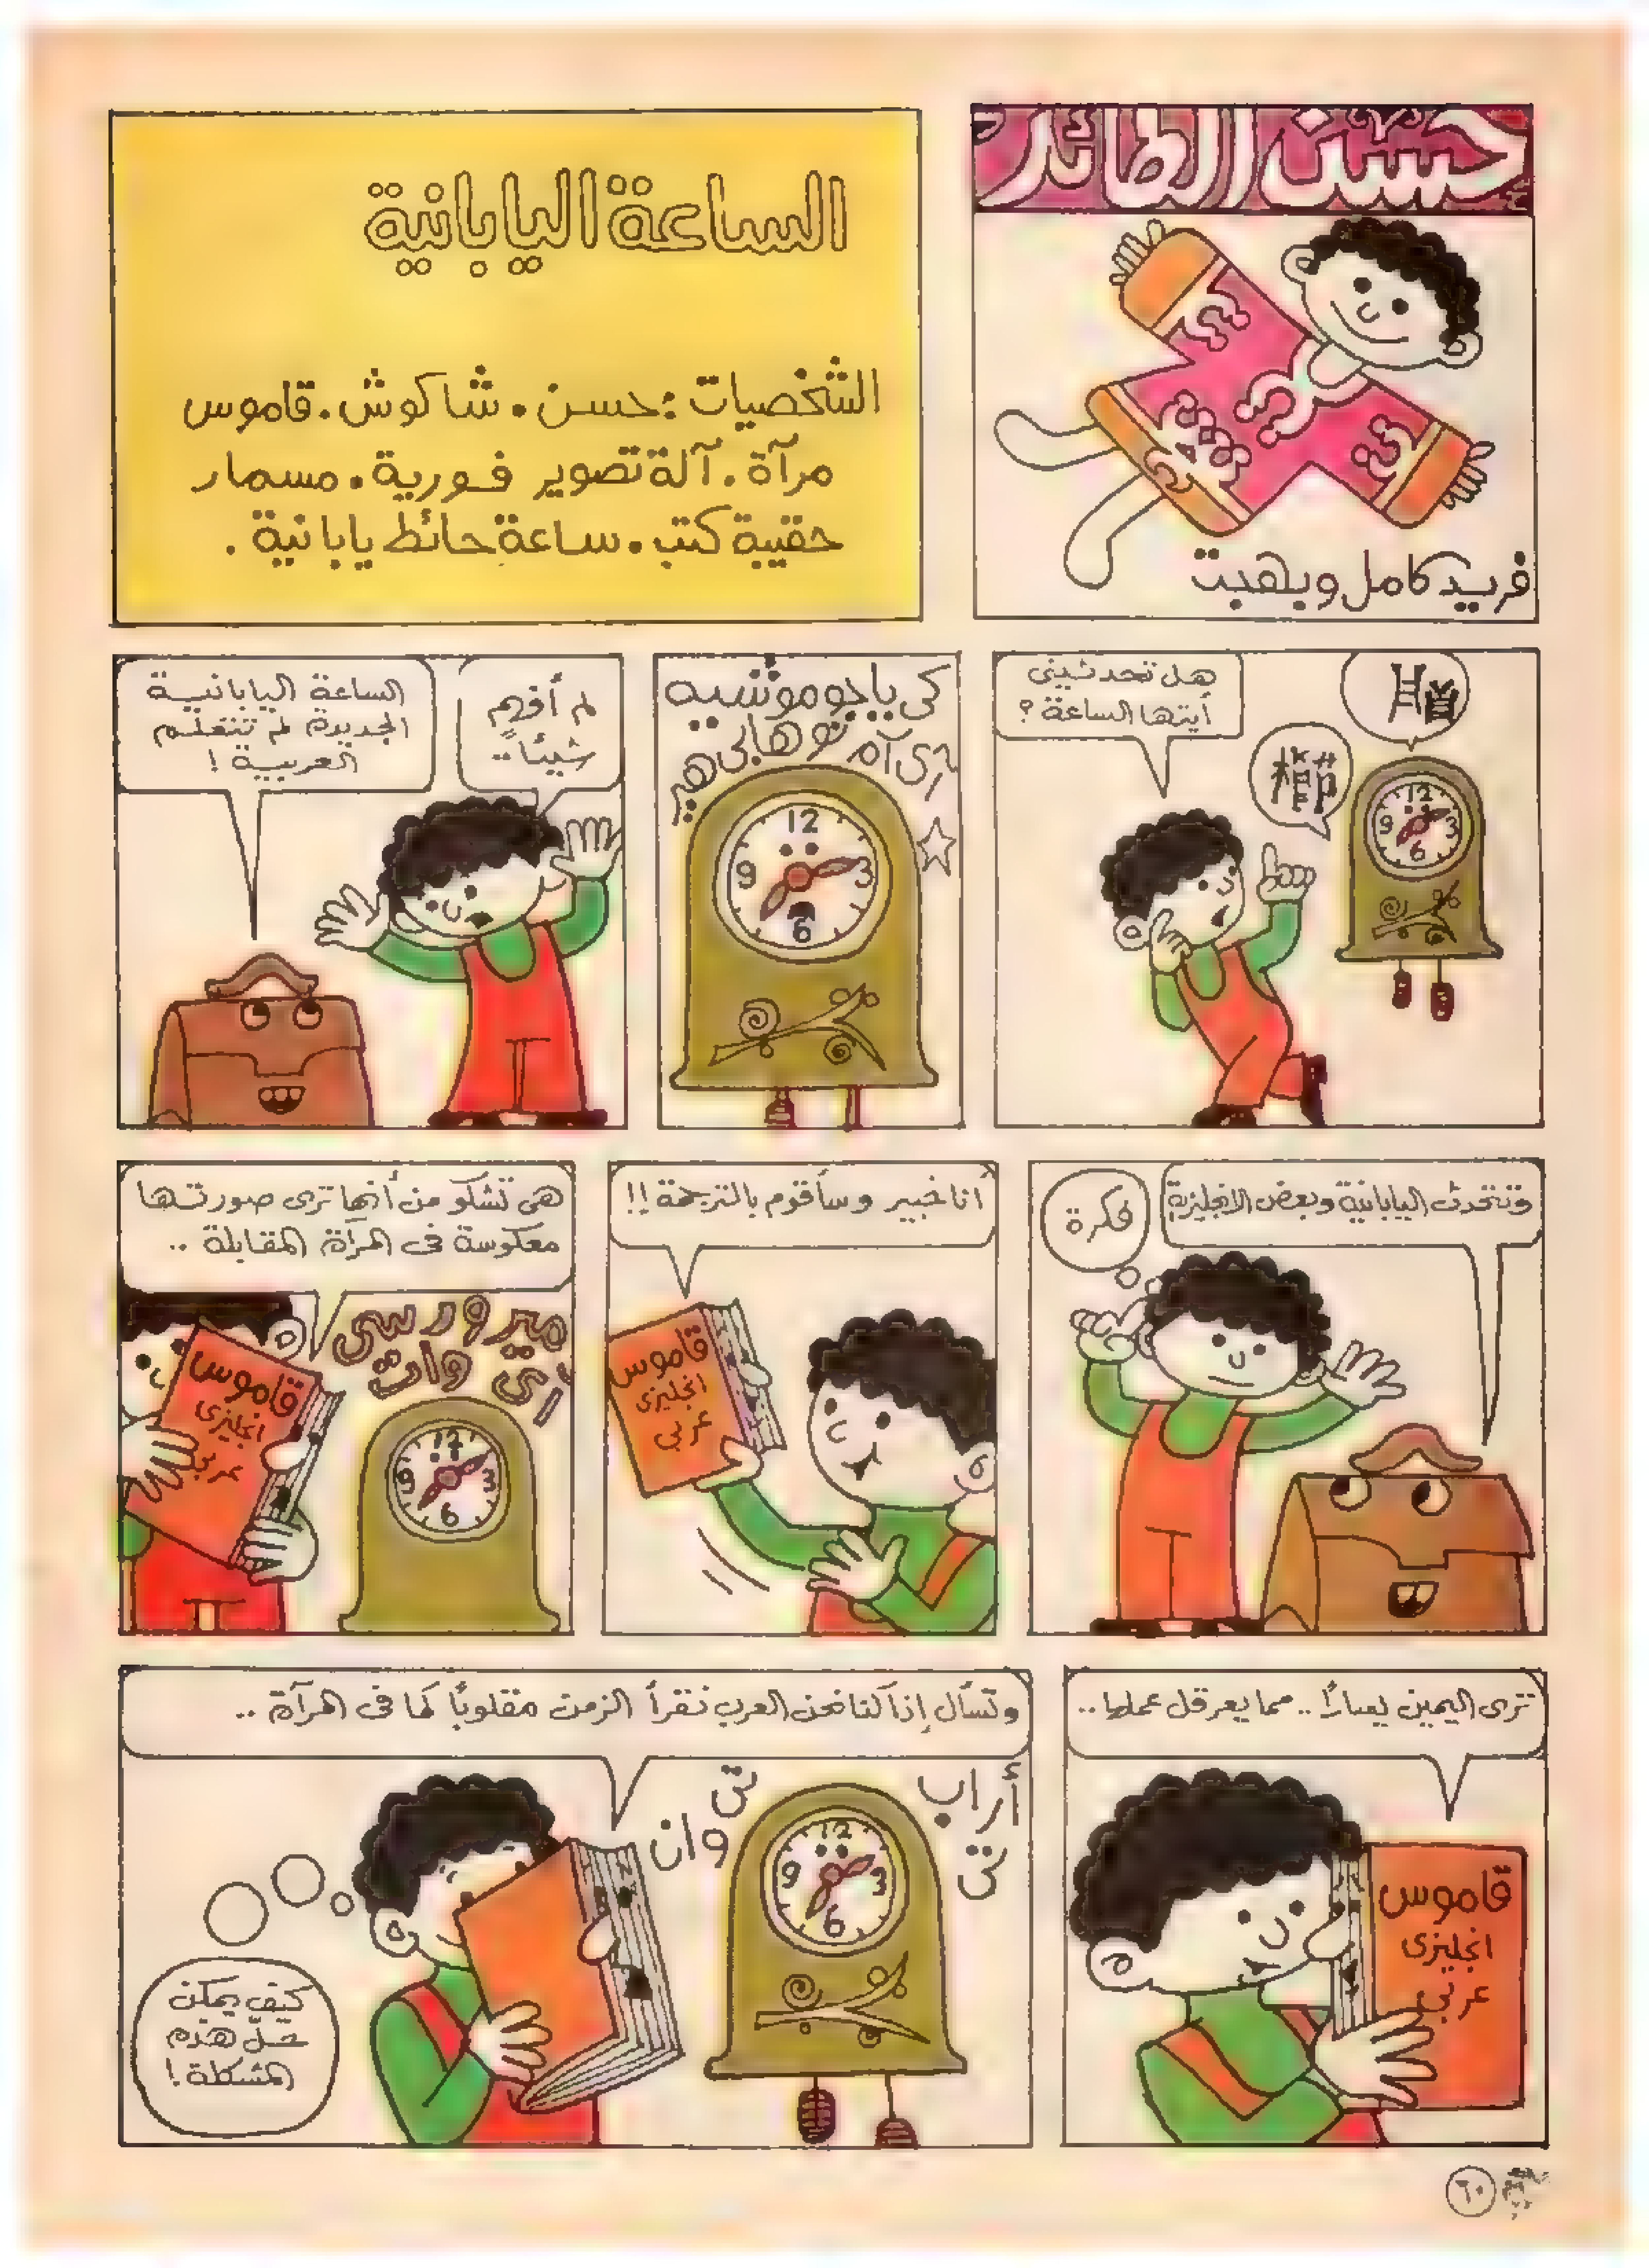 حسن الطائر
فريد كامل وبهجت
الساعة اليابانية
الشخصيات : حسن . شاكوش . قاموس
مرآة . آلة تصوير فورية . مسمار
حقيبة كتب . ساعة حائط يابانية .
هل تحدثيني
أيتها الساعة ؟
12
3
6
9
كى ياجوموتشيه
آى آم تو هابى هير
12
3
6
9
لم أفهم
شيئاً ..
الساعة اليابانية
الجديدة لم تتعلم
العربية !
وتتحدث اليابانية وبعض الانجليزية
فكرة
أنا خبير وسأقوم بالترجمة !!
قاموس
انجليزى
عربى
هى تشكو من أنها ترى صورتها
معكوسة فى المرآة المقابلة ..
ميرور سى
آى وات
قاموس
انجليزى
عربى
12
3
6
9
ترى اليمين يساراً .. مما يعرقل عملها ..
قاموس
انجليزى
عربى
وتسأل إذا كنا نحن العرب نقرأ الزمن مقلوباً كما فى المرآة ..
أراب
تى
تى
وان
12
3
6
9
كيف يمكن
حل هذه
المشكلة !
٦٠